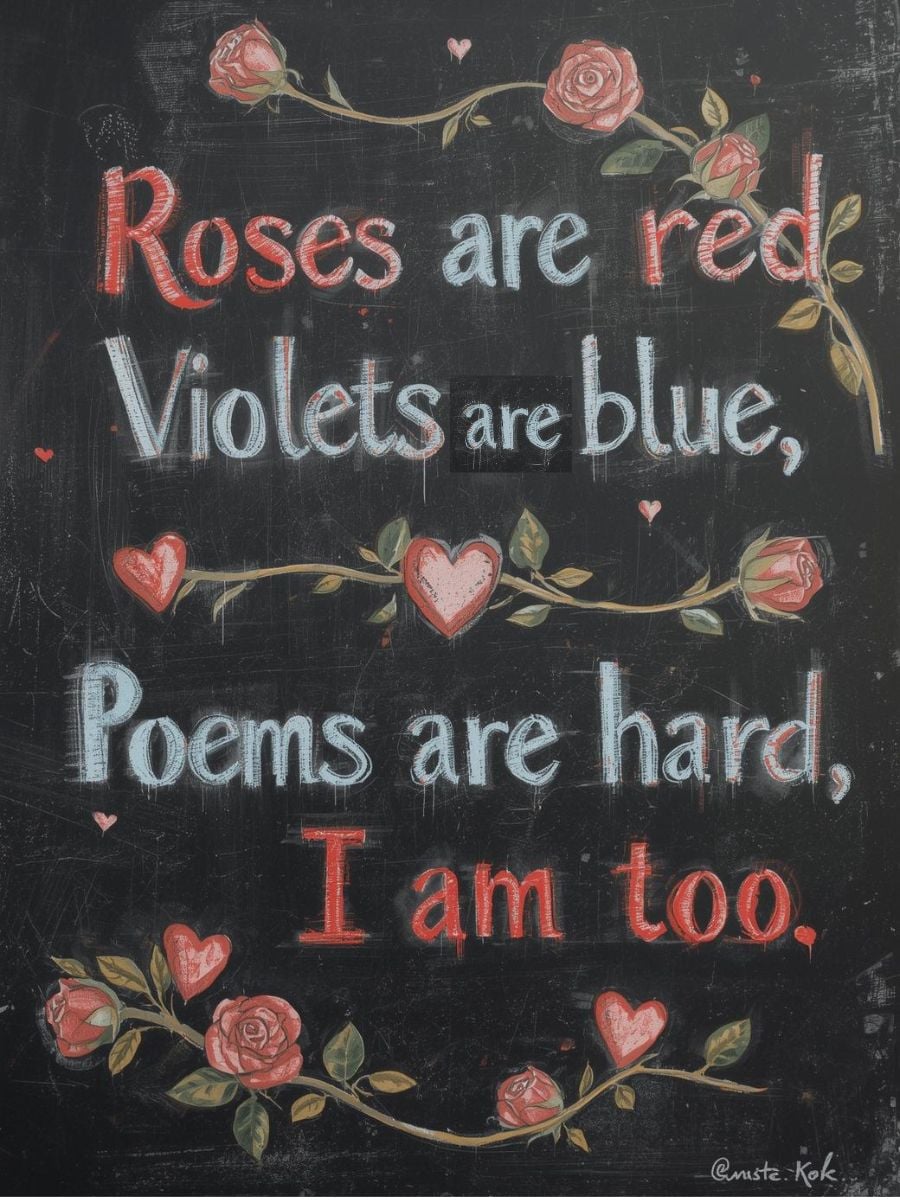 Roses are red
Violets are blue,
Poems are hard,
I am too.